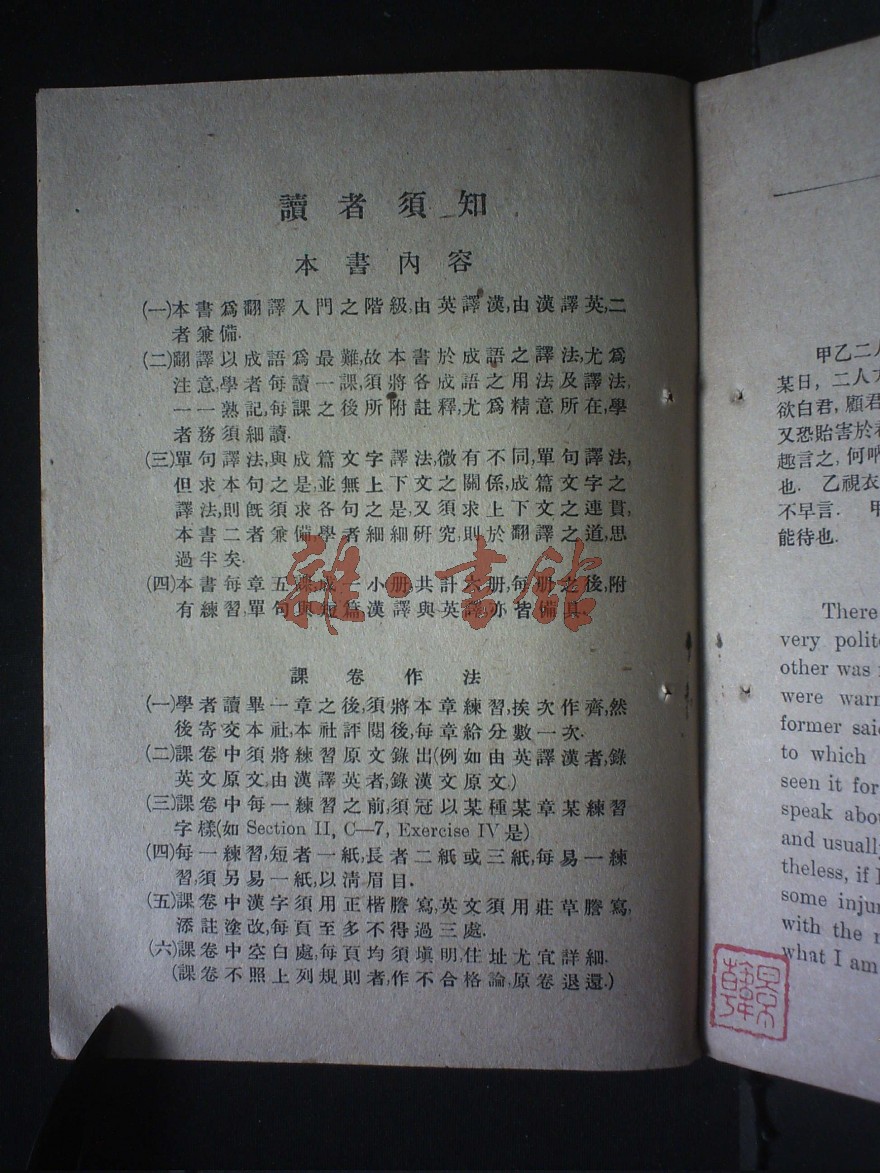 讀者須知
本書內容
(一)本書爲翻譯入門之階級,由英譯漢,由漢譯英,二
者兼備.
(二)翻譯以成語爲最難,故本書於成語之譯法,尤爲
注意,學者每讀一課,須將各成語之用法及譯法,
一一熟記,每課之後所附註釋,尤爲精意所在,學
者務須細讀.
(三)單句譯法,與成篇文字譯法,微有不同,單句譯法,
但求本句之是,並無上下文之關係,成篇文字之
譯法,則旣須求各句之是,又須求上下文之連貫,
本書二者兼備,學者細細硏究,則於翻譯之道,思
過半矣.
(四)本書每章五課,成一小册,共計六册,每册之後,附
有練習,單句與短篇,漢譯與英譯,亦皆備具.
課卷作法
(一)學者讀畢一章之後,須將本章練習,挨次作齊,然
後寄交本社,本社評閱後,每章給分數一次.
(二)課卷中須將練習原文錄出(例如由英譯漢者,錄
英文原文,由漢譯英者,錄漢文原文.)
(三)課卷中每一練習之前,須冠以某種某章某練習
字樣(如 Section II, C—7, Exercise IV 是)
(四)每一練習,短者一紙,長者二紙或三紙,每易一練
習,須另易一紙,以淸眉目.
(五)課卷中漢字須用正楷謄寫,英文須用莊草謄寫,
添註塗改,每頁至多不得過三處.
(六)課卷中空白處,每頁均須塡明,住址尤宜詳細.
(課卷不照上列規則者,作不合格論,原卷退還.)
雜·書館
甲乙二人
某日,二人
欲白君,顧君
又恐貽害於
趣言之,何
也. 乙視衣
不早言.
能待也.
There
very polit
other was
were warn
former said
to which
seen it for
speak abou
and usually
theless, if I
some injur
with the
what I am